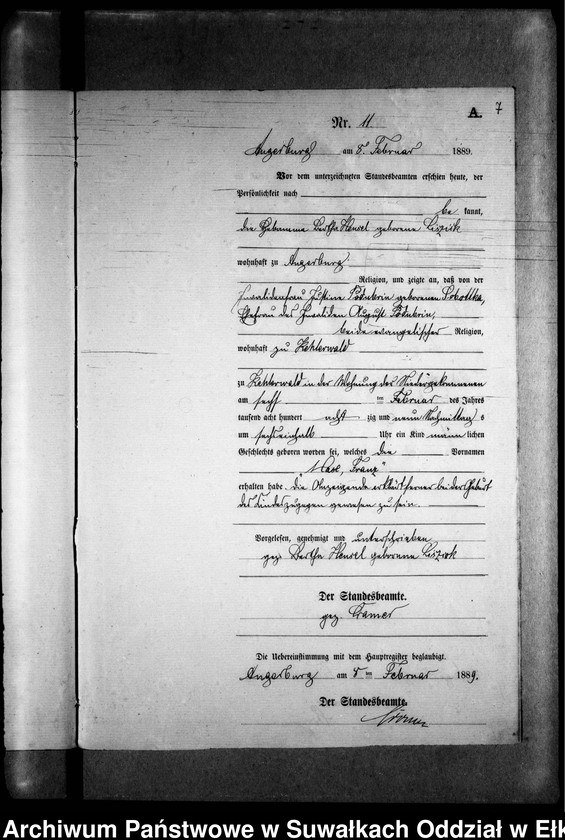 A. 7
Nr. 11
Angerburg am 8. Februar 1889.
Vor dem unterzeichneten Standesbeamten erschien heute, der
Persönlichkeit nach
be kannt,
die Hebamme Bertha Hensel geborene
wohnhaft zu Angerburg
Religion, und zeigte an, daß von der
Invalidenfrau Justine geborenen
Ehefrau des Invaliden August
beide evangelischer Religion,
wohnhaft zu Kehlerwald
zu Kehlerwald in der Wohnung der Niedergekommenen
am sechs ten Februar des Jahres
tausend acht hundert acht zig und neun Nachmittag s
um Uhr ein Kind männ lichen
Geschlechts geboren worden sei, welches die Vornamen
"Max, Franz"
erhalten habe. Die Anzeigende erklärt ferner bei der Geburt
des Kindes zugegen gewesen zu sein.
Vorgelesen, genehmigt und unterschrieben
gez. Bertha Hensel geborene
Der Standesbeamte.
gez. Cramer
Die Uebereinstimmung mit dem Hauptregister beglaubigt.
Angerburg am 8 ten Februar 1889.
Der Standesbeamte.
Archiwum Państwowe w Suwałkach Oddział w Ełk